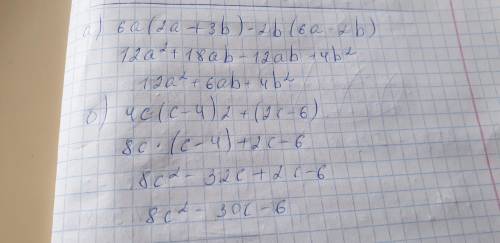 а) 6a(2a+3b)-2b(6a-2b)
12a²+18ab-12ab+4b²
12a²+6ab+4b²
б) 4c(c-4)2+(2c-6)
8c·(c-4)+2c-6
8c²-32c+2c-6
8c²-30c-6